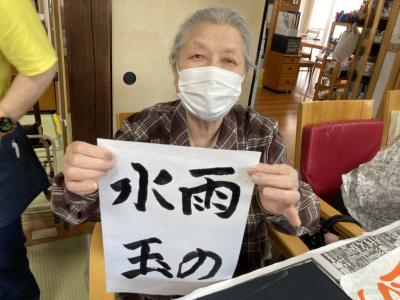 雨の
水玉